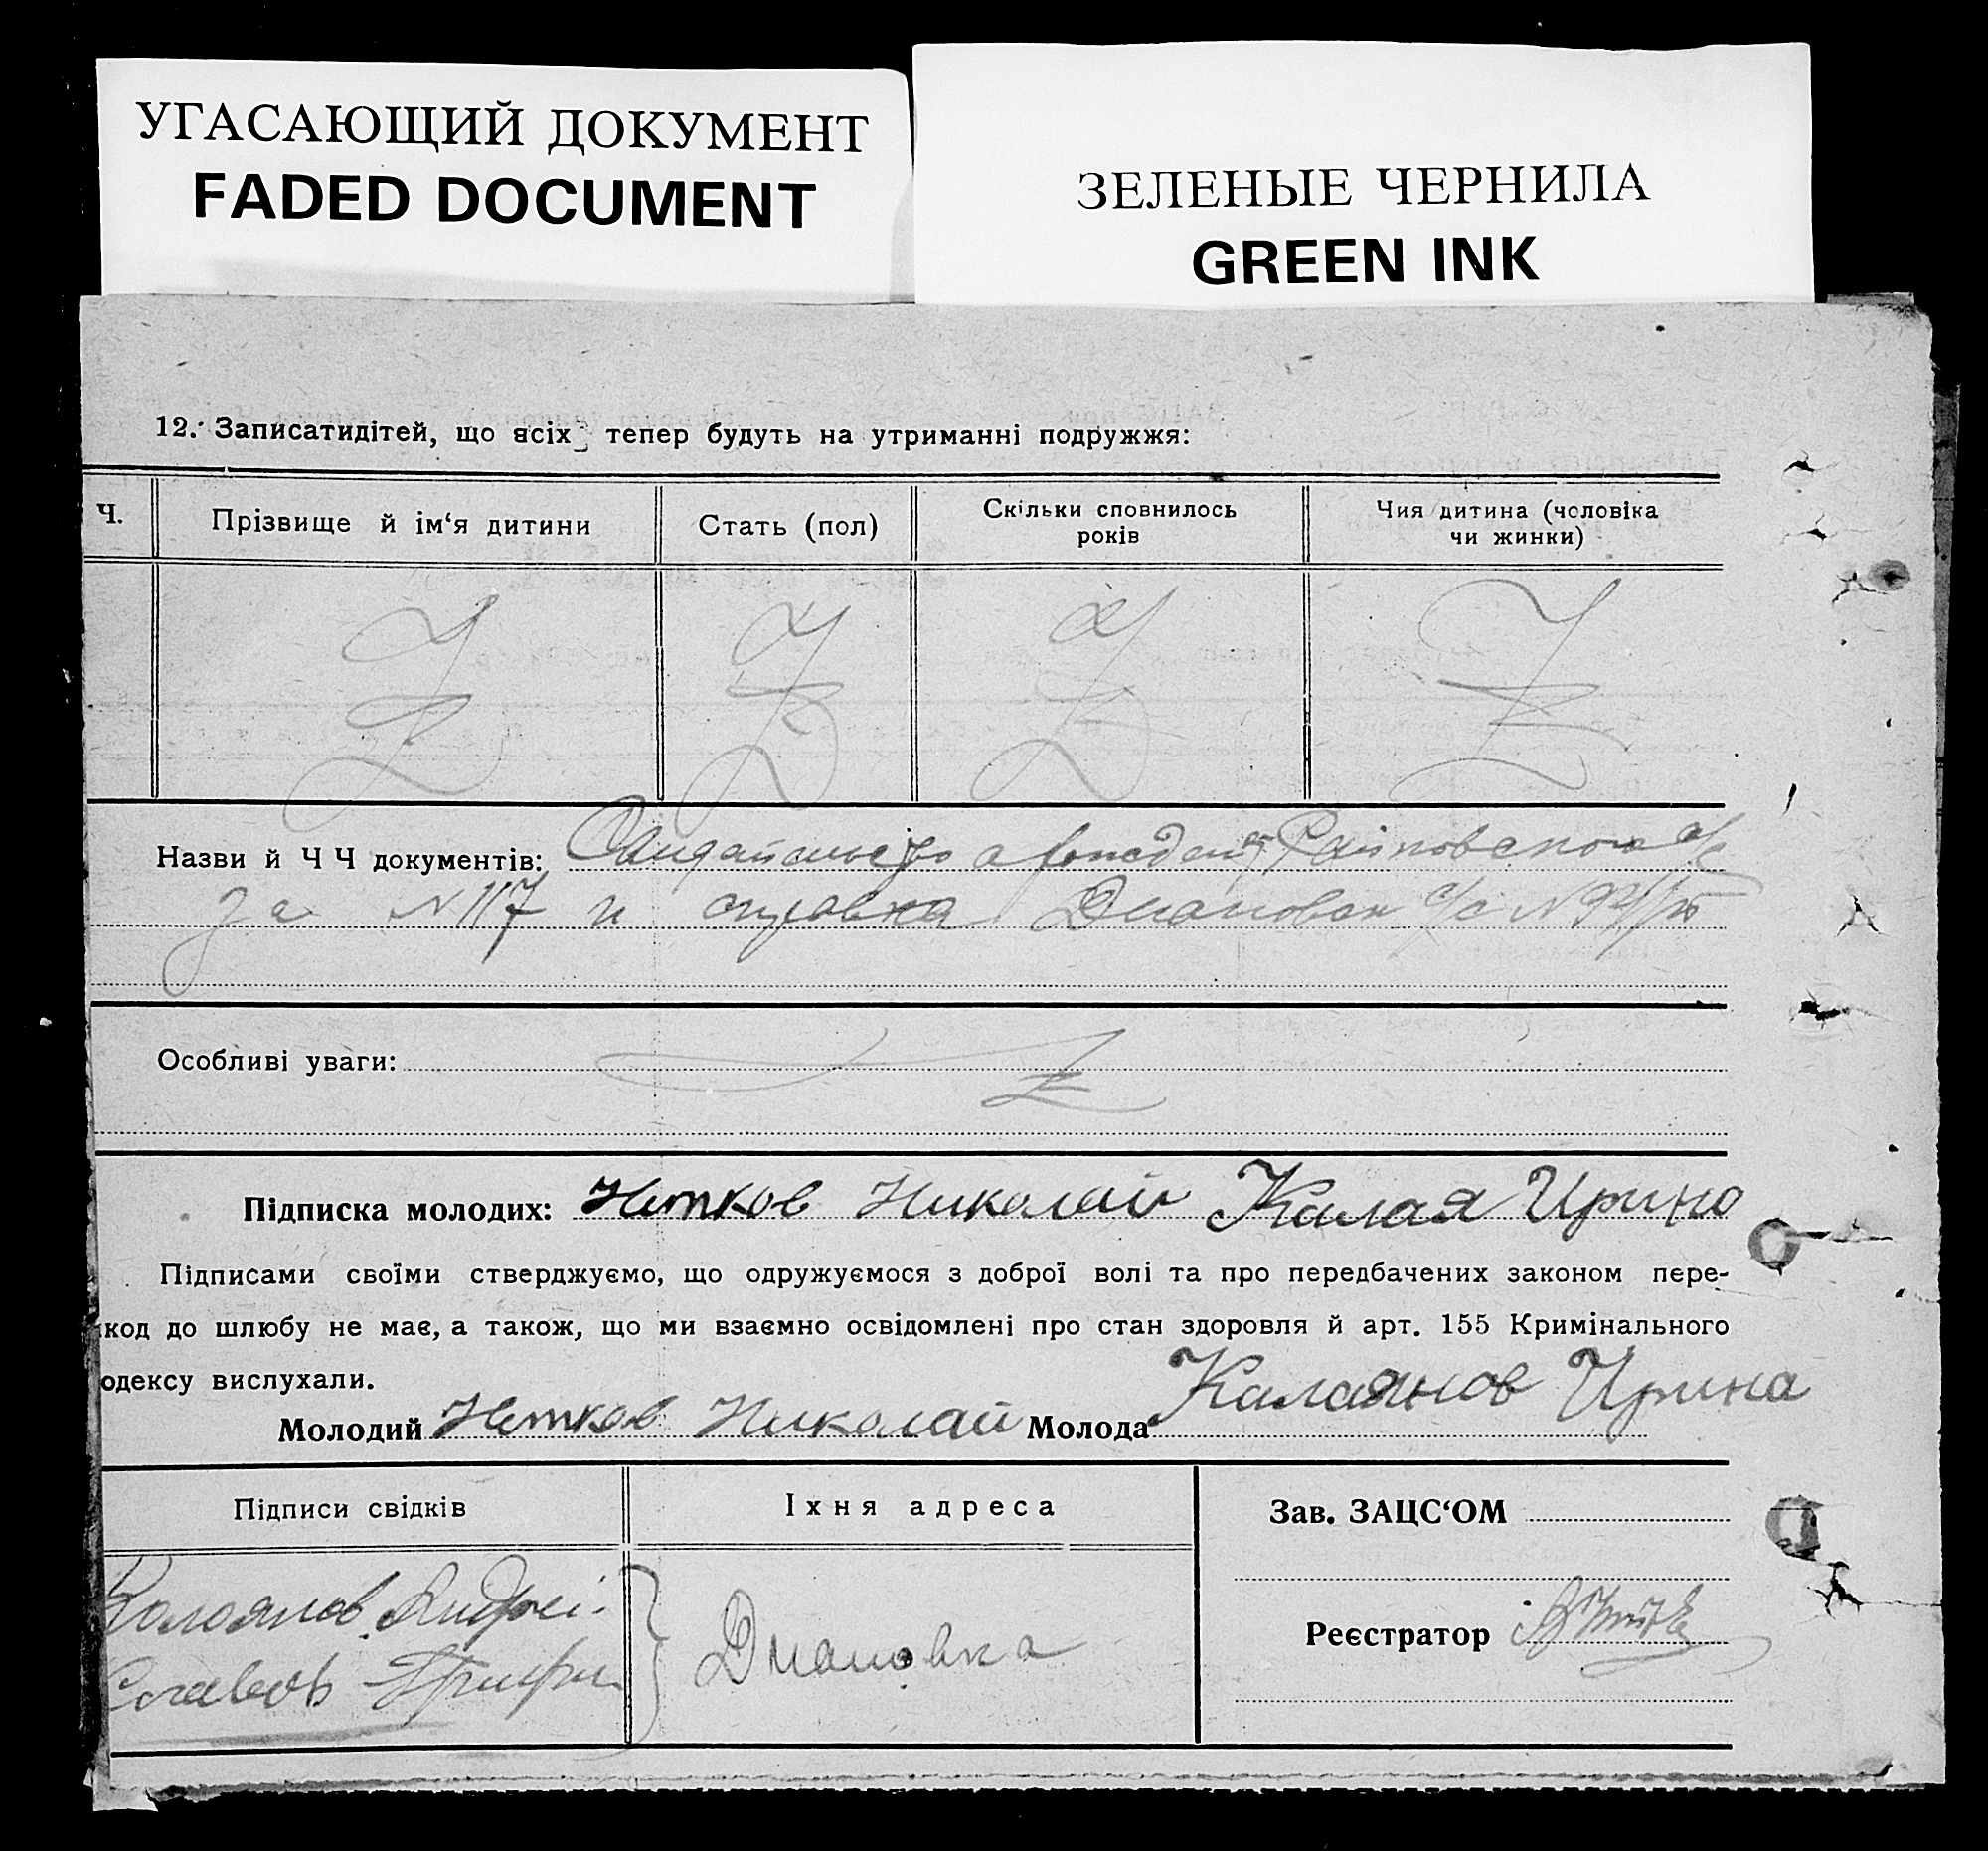 УГАСАЮЩИЙ ДОКУМЕНТ
FADED DOCUMENT
ЗЕЛЕНЫЕ ЧЕРНИЛА
GREEN INK
12. Записатидітей, що всіх тепер будуть на утриманні подружжя:
Ч.
Прізвище й ім‘я дитини
Стать (пол)
Скільки сповнилось
років
Чия дитина (чоловіка
чи жинки)
Назви й Ч Ч документів: о
за № 117 и справка с/с №
Особливі уваги:
Підписка молодих: Нетков Николай Калая Ирина
Підписами своїми стверджуємо, що одружуємося з доброї волі та про передбачених законом пере-
код до шлюбу не має, а також, що ми взаємно освідомлені про стан здоровля й арт. 155 Кримінального
одексу вислухали.
Молодий Нетков Николай Молода Калаянов Ирина
Підписи свідків
Іхня адреса
Зав. ЗАЦС‘ОМ
Колоянов Андреі
Славов
Диановка
Реєстратор